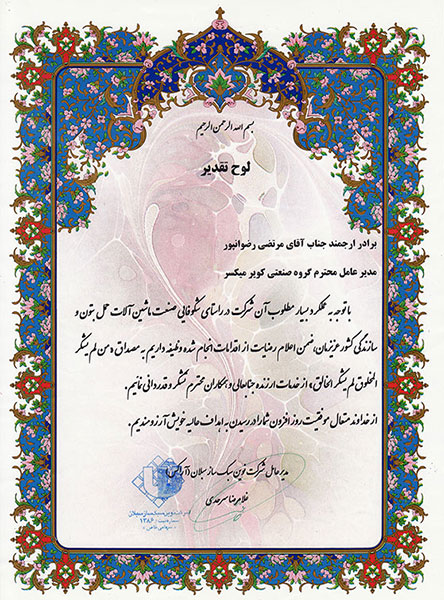 بسم الله الرحمن الرحیم
لوح تقدیر
برادر ارجمند جناب آقای مرتضی رضوانپور
مدیر عامل محترم گروه صنعتی کویر میکسر
با توجه به عملکرد بسیار مطلوب آن شرکت در راستای شکوفایی صنعت ماشین آلات حمل بتون و
سازندگی کشور عزیزمان، ضمن اعلام رضایت از اقدامات انجام شده وظیفه داریم به مصداق «من لم یشکر
المخلوق لم یشکر الخالق»، از خدمات ارزنده جنابعالی و همکاران محترم تشکر و قدردانی نمائیم.
از خداوند متعال موفقیت روز افزون شما را در رسیدن به اهداف عالیه خویش آرزومندیم.
مدیر عامل شرکت نوین سبک ساز سبلان (آراکس)
غلامرضا سرحدی
شرکت نوین سبک ساز سبلان
۱۳۸۶